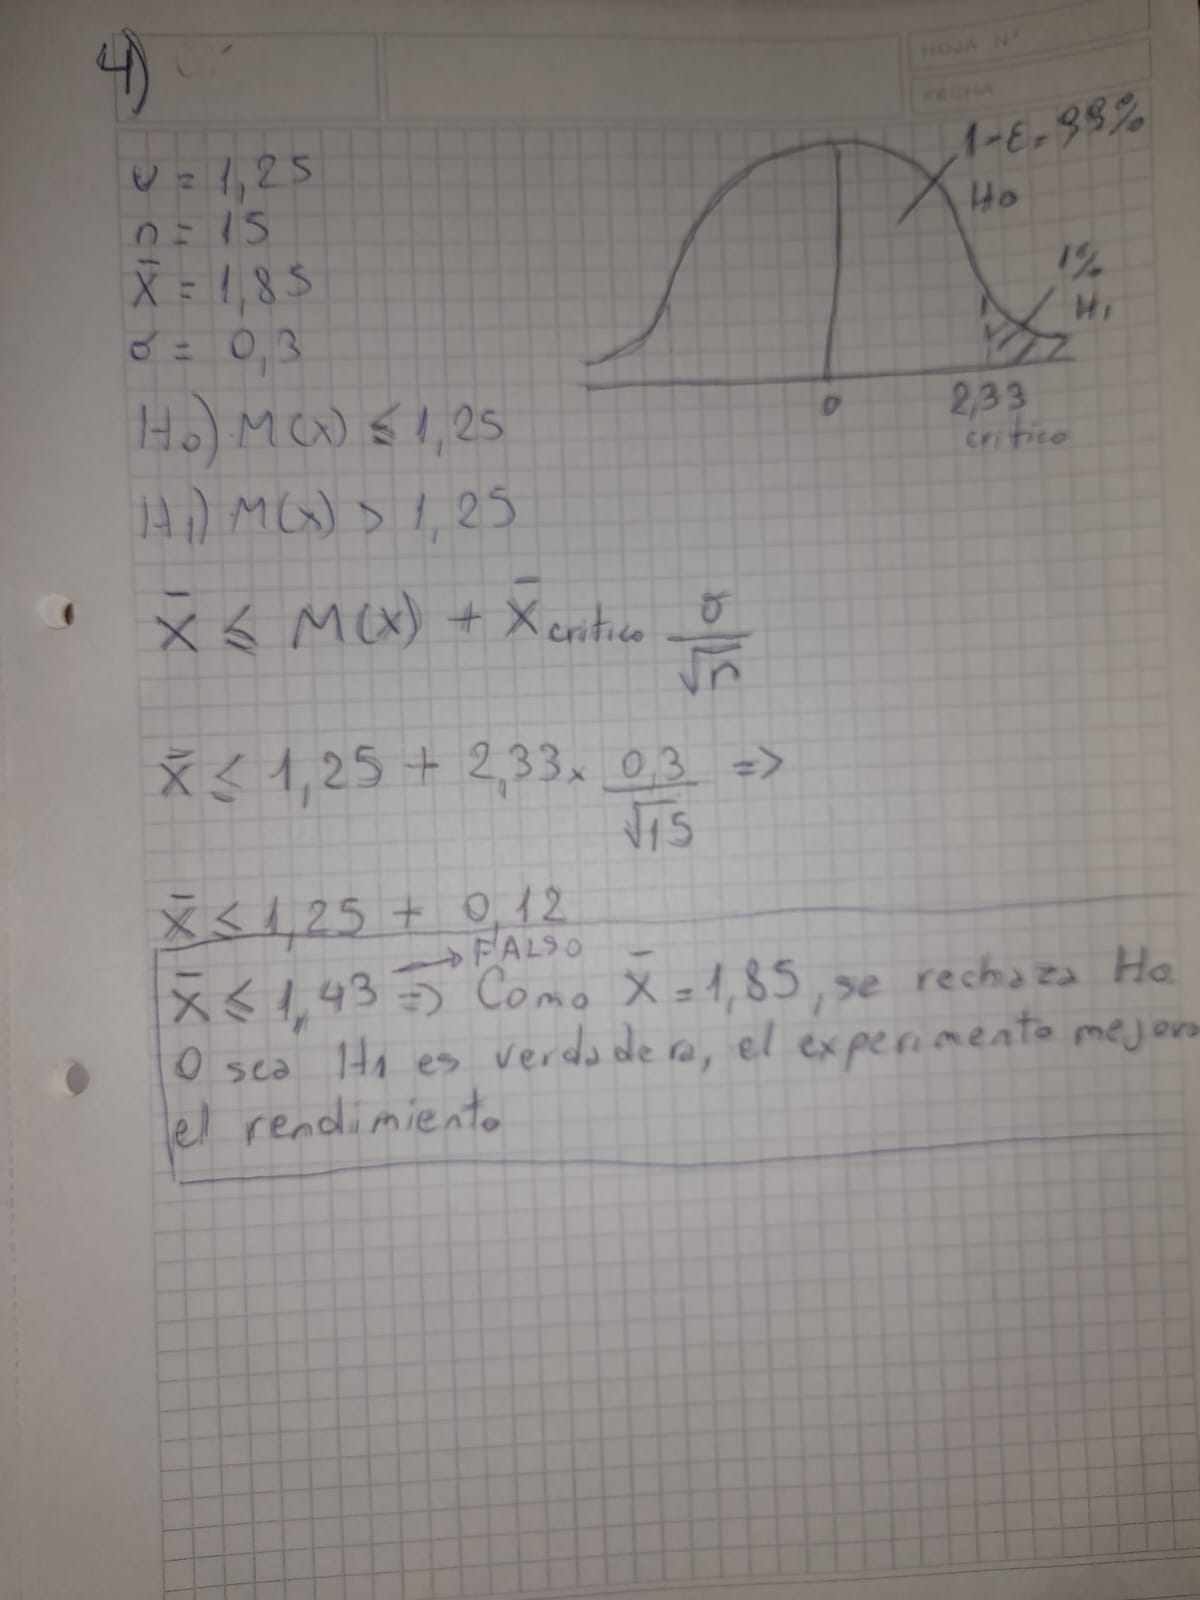 4)
HOJA N°
FECHA
μ = 1,25
n = 15
x̄ = 1,85
σ = 0,3
1-ε = 99%
H0
1%
H1
0
2,33
critico
H0) M(x) ≤ 1,25
H1) M(x) > 1,25
x̄ ≤ M(x) + x̄ critico σ/√n
x̄ ≤ 1,25 + 2,33 × 0,3/√15 =>
x̄ ≤ 1,25 + 0,12
→ FALSO
x̄ ≤ 1,43 => Como x̄ = 1,85, se rechaza H0
O sea H1 es verdadera, el experimento mejora
el rendimiento